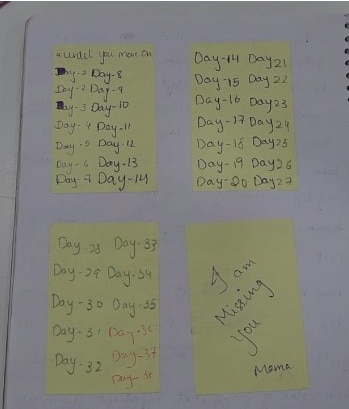 * until you move on
Day-1 Day-8
Day-2 Day-9
Day-3 Day-10
Day-4 Day-11
Day-5 Day-12
Day-6 Day-13
Day-7 Day-14
Day-14 Day 21
Day-15 Day 22
Day-16 Day 23
Day-17 Day 24
Day-18 Day 25
Day-19 Day 26
Day-20 Day 27
Day 28 Day-33
Day-29 Day-34
Day-30 Day-35
Day-31 Day-36
Day-32 Day-37
Day-38
I am
Missing
you
Mama